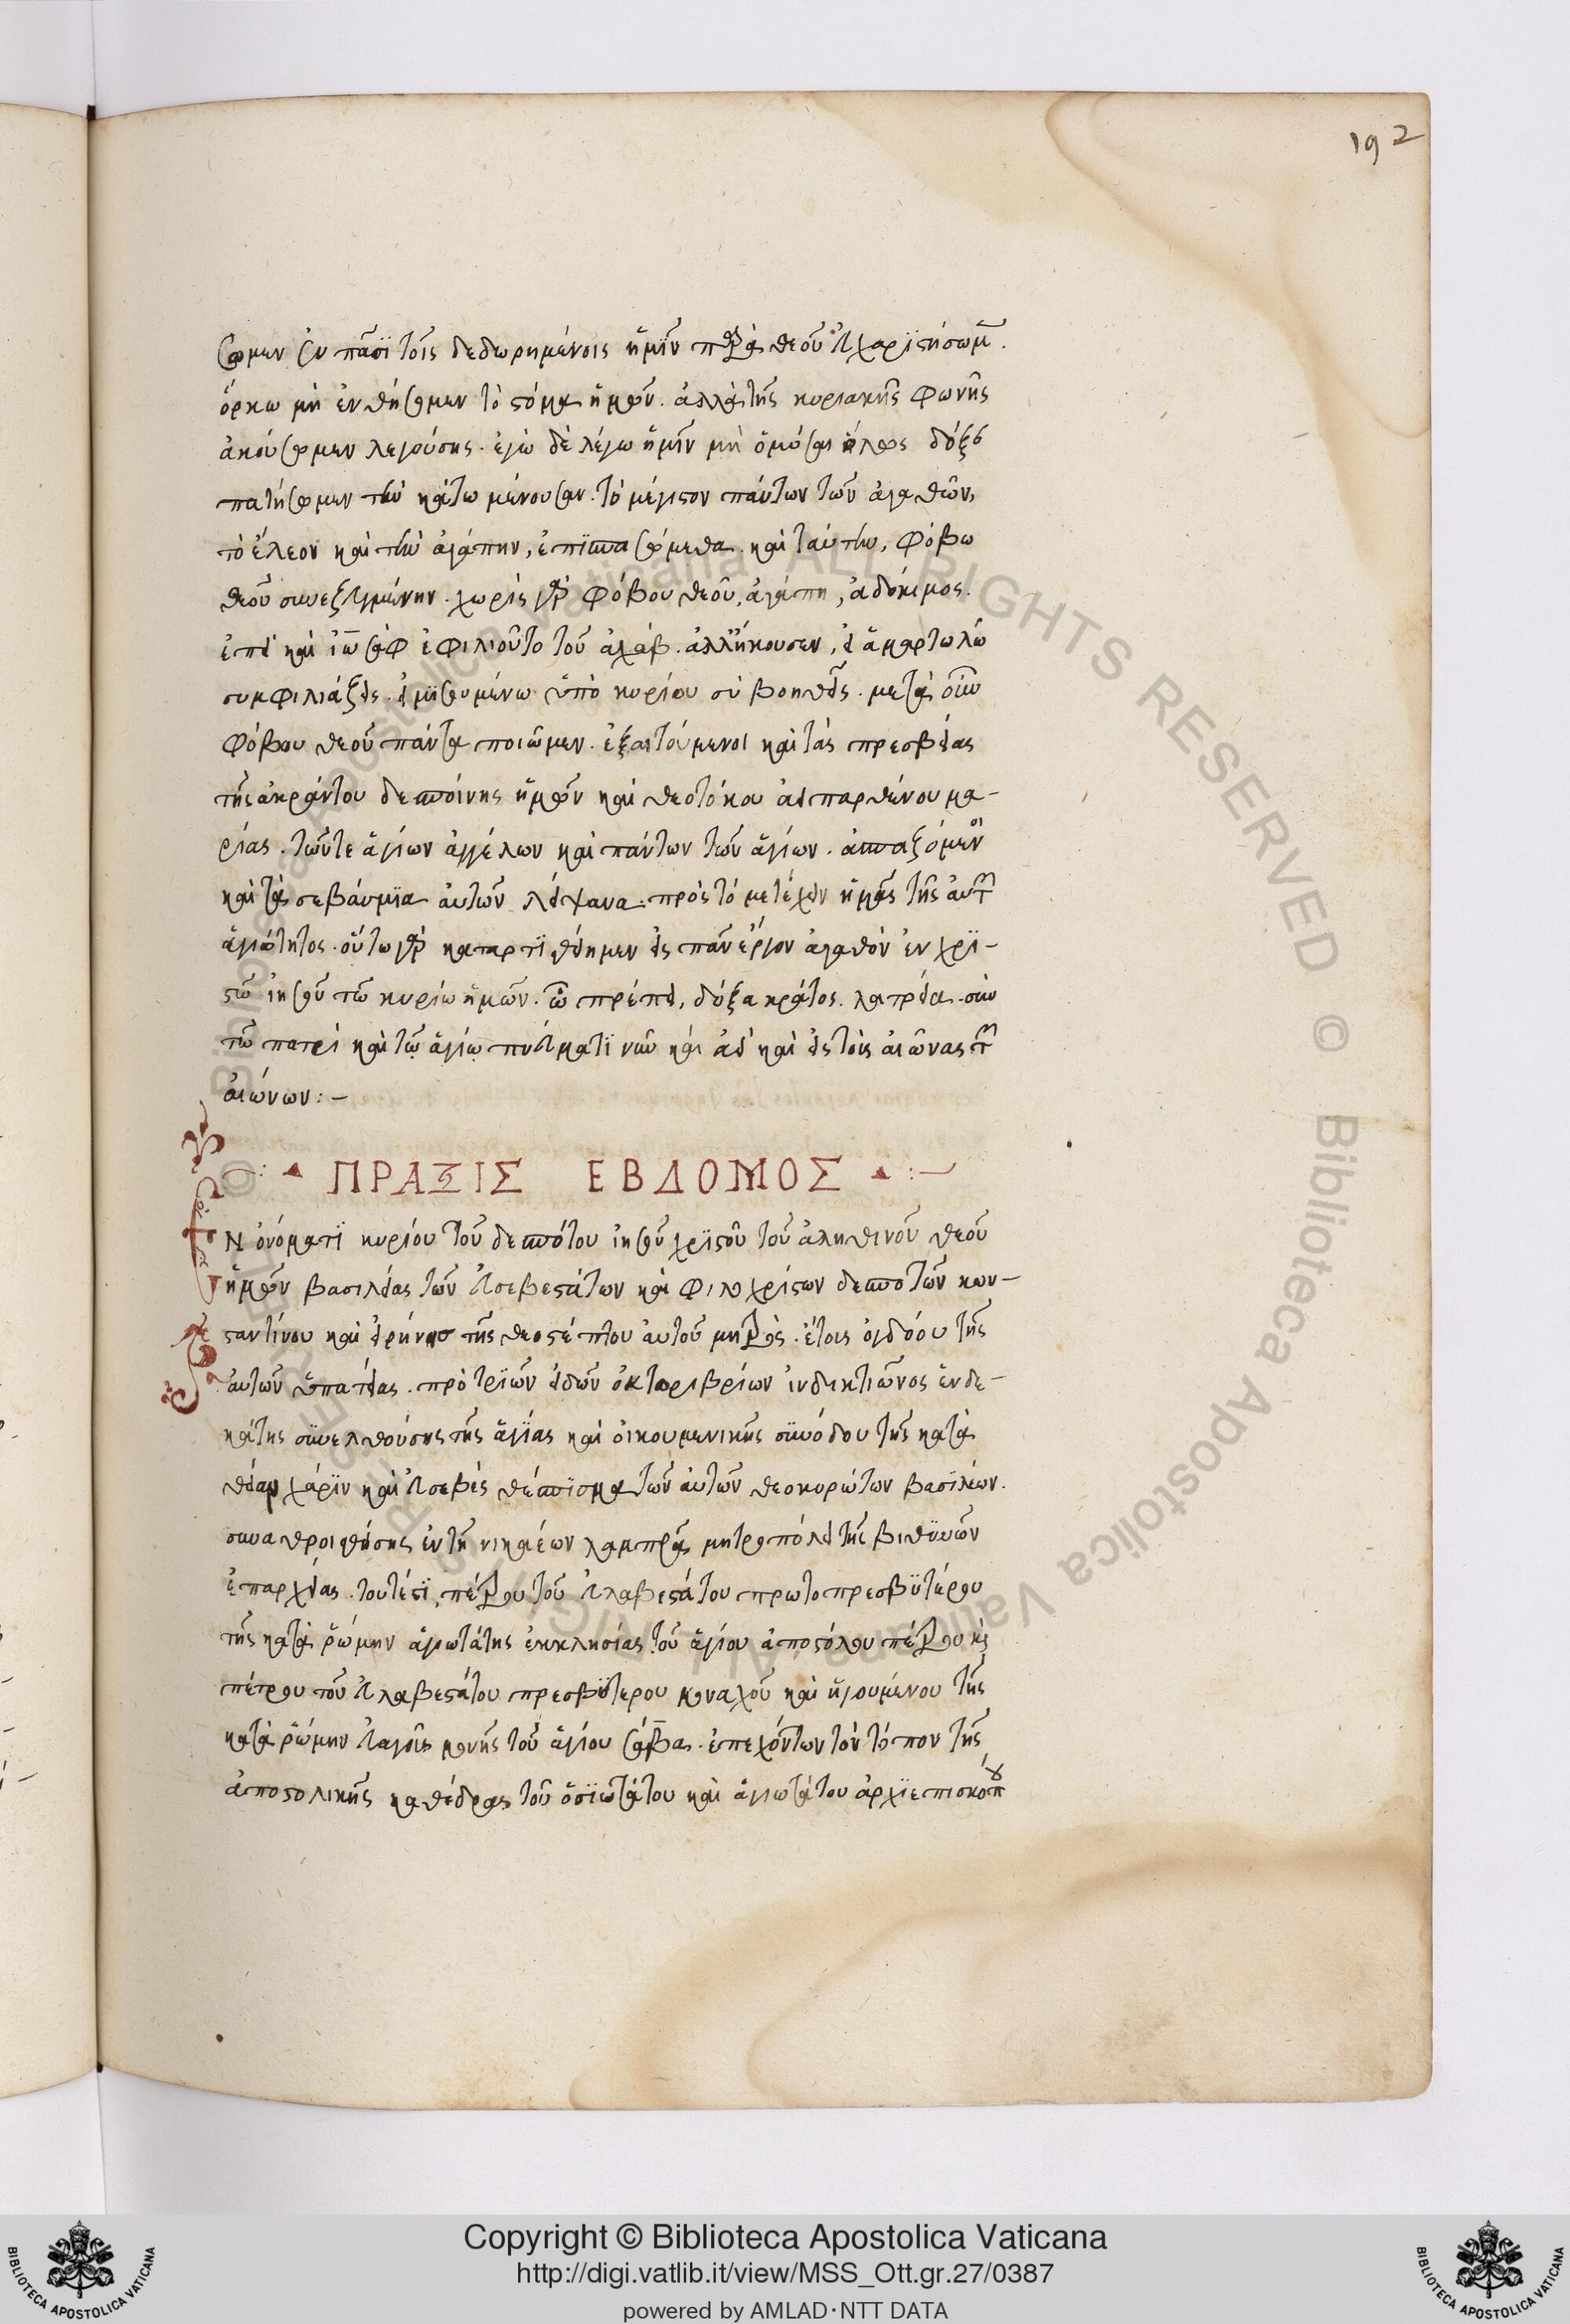 192
σωμεν ἐν πᾶσι τοῖς δεδωρημένοις ἡμῖν παρὰ θεοῦ εὐχαριστήσωμεν.
ὅρκω μὴ ἐνθήσωμεν τὸ στόμα ἡμῶν. ἀλλὰ τῆς κυριακῆς φωνῆς
ἀκούσωμεν λεγούσης. ἐγὼ δὲ λέγω ἡμῖν μὴ ὀμόσαι ὅλως δόξαν
πατήσωμεν τὴν κάτω μένουσαν. τὸ μέγιστον πάντων τῶν ἀγαθῶν,
τὸ ἔλεον καὶ τὴν ἀγάπην, ἐπισπασώμεθα. καὶ ταύτην, φόβω
θεοῦ συνεζευγμένην. χωρὶς γὰρ φόβου θεοῦ, ἀγάπη, ἀδόκιμος.
ἐπεὶ καὶ ἰωσὰφ ἐφιλιοῦτο τοῦ ἀχαάβ. ἀλλ' ἤκουσεν, εἰ ἁμαρτωλῶ
συμφιλιάζεις. εἰ μισουμένω ὑπὸ κυρίου σὺ βοηθεῖς. μετὰ οὖν
φόβου θεοῦ πάντα ποιῶμεν. ἐξαιτούμενοι καὶ τὰς πρεσβείας
τῆς ἀχράντου δεσποίνης ἡμῶν καὶ θεοτόκου ἀειπαρθένου μα-
ρίας. τῶν τε ἁγίων ἀγγέλων καὶ πάντων τῶν ἁγίων. ἀσπαζόμενοι
καὶ τὰ σεβάσμια αὐτῶν λείψανα. πρὸς τὸ μετέχειν ἡμᾶς τῆς αὐτῶν
ἁγιότητος. οὕτω γὰρ καταρτισθείημεν εἰς πᾶν ἔργον ἀγαθὸν ἐν χρι-
στῶ ἰησοῦ τῶ κυρίω ἡμῶν. ὧ πρέπει, δόξα κράτος. λατρεία. σὺν
τῶ πατρὶ καὶ τῶ ἁγίω πνεύματι νῦν καὶ ἀεὶ καὶ εἰς τοὺς αἰῶνας τῶν
αἰώνων:–
ΠΡΑΞΙΣ ΕΒΔΟΜΟΣ
Ν ὀνόματι κυρίου τοῦ δεσπότου ἰησοῦ χριστοῦ τοῦ ἀληθινοῦ θεοῦ
ἡμῶν βασιλείας τῶν εὐσεβεστάτων καὶ φιλοχρίστων δεσποτῶν κων-
σταντίνου καὶ εἰρήνης τῆς θεοσέπτου αὐτοῦ μητρὸς. ἔτους ὀγδόου τῆς
αὐτῶν ὑπατείας. πρὸ τριῶν εἰδῶν ὀκτωβρίων ἰνδικτιῶνος ἑνδε-
κάτης συνελθούσης τῆς ἁγίας καὶ οἰκουμενικῆς συνόδου τῆς κατὰ
θείαν χάριν καὶ εὐσεβὲς θέσπισμα τῶν αὐτῶν θεοκυρώτων βασιλέων.
συναθροισθείσης ἐν τῆ νικαέων λαμπρᾶ μητροπόλει τῆς βιθυνῶν
ἐπαρχείας. τουτέστι, πέτρου τοῦ εὐλαβεστάτου πρωτοπρεσβυτέρου
τῆς κατὰ ῥώμην ἁγιωτάτης ἐκκλησίας τοῦ ἁγίου ἀποστόλου πέτρου καὶ
πέτρου τοῦ εὐλαβεστάτου πρεσβυτέρου μοναχοῦ καὶ ἡγουμένου τῆς
κατὰ ῥώμην εὐαγοῦς μονῆς τοῦ ἁγίου σάβα. ἐπεχόντων τὸν τόπον τῆς
ἀποστολικῆς καθέδρας τοῦ ὁσιωτάτου καὶ ἁγιωτάτου ἀρχιεπισκόπου
Copyright © Biblioteca Apostolica Vaticana
http://digi.vatlib.it/view/MSS_Ott.gr.27/0387
powered by AMLAD·NTT DATA